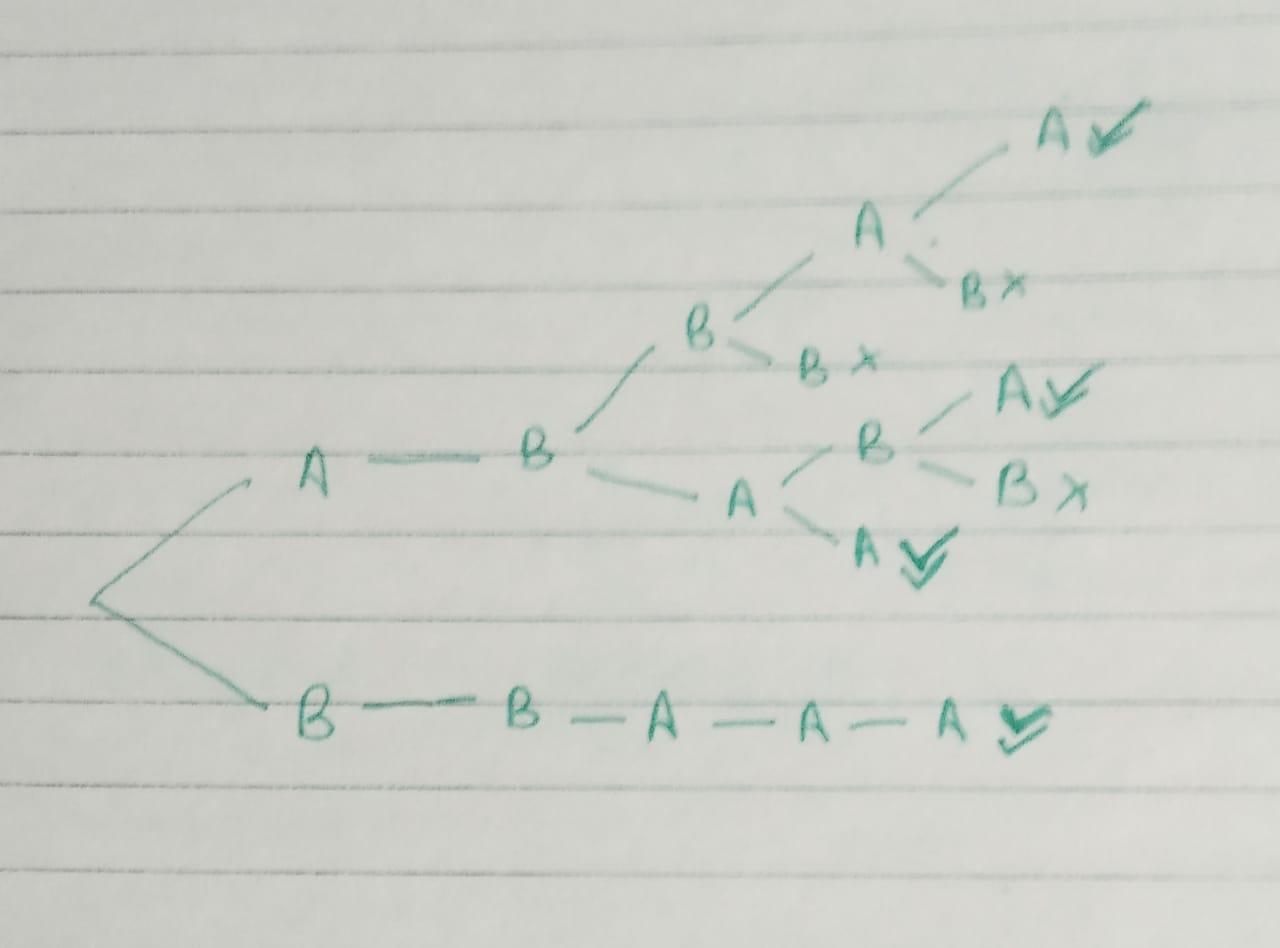 A ✓
A
B ×
B
B ×
A ✓
B
A — B
B ×
A
A ✓
B — B — A — A — A ✓